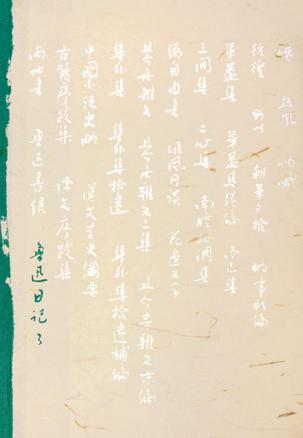 坟 热风 呐喊
彷徨 野草 朝华夕拾 故事新编
华盖集 华盖集续编 而已集
三闲集 二心集 南腔北调集
伪自由书 准风月谈 花边文学
且介亭杂文 且介亭杂文二集 且介亭杂文末编
集外集 集外集拾遗 集外集拾遗补编
中国小说史略 汉文学史纲要
古籍序跋集 译文序跋集
两地书 鲁迅书信
鲁迅日记 3